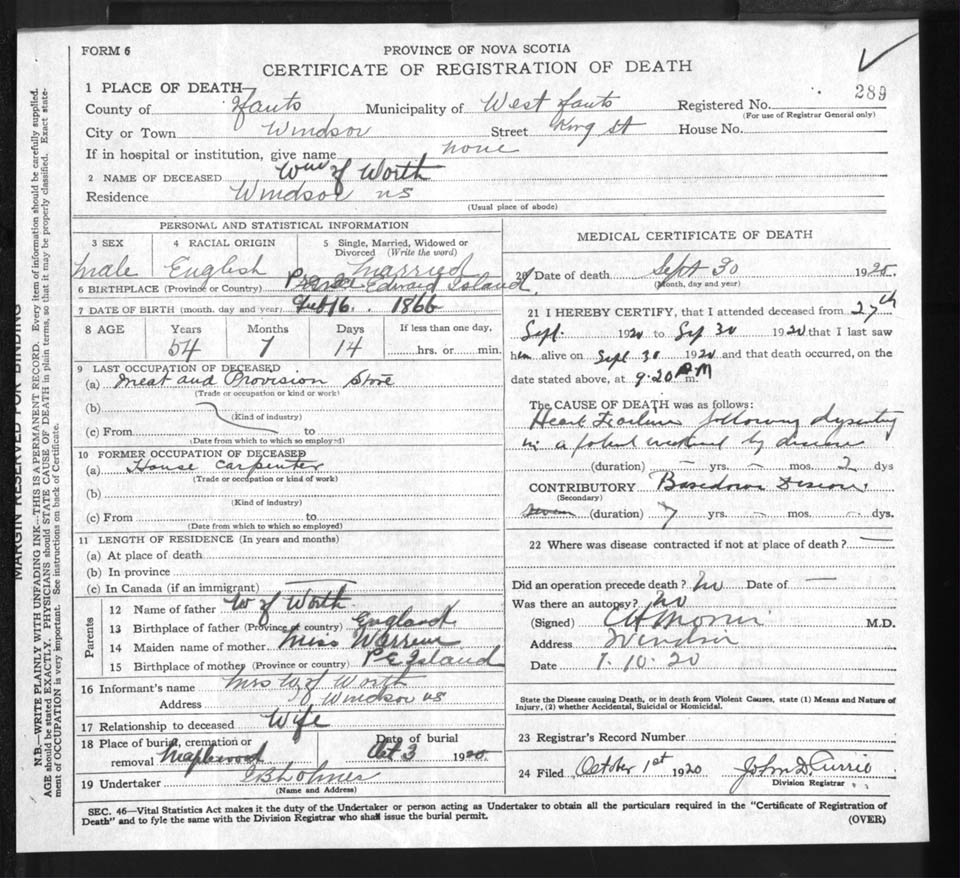 FORM 6
PROVINCE OF NOVA SCOTIA
CERTIFICATE OF REGISTRATION OF DEATH
289
1 PLACE OF DEATH
County of Hants Municipality of West Hants Registered No.
(For use of Registrar General only)
City or Town Windsor Street King St House No.
If in hospital or institution, give name none
2 NAME OF DECEASED Wm H Worth
Residence Windsor NS
(Usual place of abode)
PERSONAL AND STATISTICAL INFORMATION
3 SEX 4 RACIAL ORIGIN 5 Single, Married, Widowed or Divorced (Write the word)
Male English Married
6 BIRTHPLACE (Province or Country) Prince Edward Island
7 DATE OF BIRTH (month, day and year) Feb 16. 1866
8 AGE Years Months Days If less than one day,
54 7 14 hrs. or min.
9 LAST OCCUPATION OF DECEASED
(a) Meat and Provision Store
(Trade or occupation or kind or work)
(b)
(Kind of industry)
(c) From to
(Date from which to which so employed)
10 FORMER OCCUPATION OF DECEASED
(a) House Carpenter
(Trade or occupation or kind of work)
(b)
(Kind of industry)
(c) From to
(Date from which to which so employed)
11 LENGTH OF RESIDENCE (In years and months)
(a) At place of death
(b) In province
(c) In Canada (if an immigrant)
Parents
12 Name of father W H Worth
13 Birthplace of father (Province or country) England
14 Maiden name of mother Miss Warren
15 Birthplace of mother (Province or country) P E Island
16 Informant's name Mrs W H Worth
Address Windsor NS
17 Relationship to deceased Wife
18 Place of burial, cremation or removal Maplewood Date of burial Oct 3 1920
19 Undertaker
(Name and Address)
MEDICAL CERTIFICATE OF DEATH
20 Date of death Sept 30 1920
(Month, day and year)
21 I HEREBY CERTIFY, that I attended deceased from 27th
Sept. 1920 to Sep 30 1920 that I last saw
him alive on Sept 30 1920 and that death occurred, on the
date stated above, at 9.20 P.M m.
The CAUSE OF DEATH was as follows:
Heart Failure following dysentery
in a patient weakened by disease
(duration) – yrs. – mos. 2 dys
CONTRIBUTORY Basedows Disease
(Secondary)
(duration) 7 yrs. – mos. – dys.
22 Where was disease contracted if not at place of death? —
Did an operation precede death? No Date of —
Was there an autopsy? No
(Signed) M.D.
Address Windsor
Date 1.10.20
State the Disease causing Death, or in death from Violent Causes, state (1) Means and Nature of
Injury, (2) whether Accidental, Suicidal or Homicidal.
23 Registrar's Record Number
24 Filed October 1st 1920 John D. Currie
Division Registrar
SEC. 46—Vital Statistics Act makes it the duty of the Undertaker or person acting as Undertaker to obtain all the particulars required in the "Certificate of Registration of
Death" and to fyle the same with the Division Registrar who shall issue the burial permit.
(OVER)
MARGIN RESERVED FOR BINDING
N.B.—WRITE PLAINLY WITH UNFADING INK—THIS IS A PERMANENT RECORD. Every item of information should be carefully supplied.
AGE should be stated EXACTLY. PHYSICIANS should STATE CAUSE OF DEATH in plain terms, so that it may be properly classified. Exact state-
ment of OCCUPATION is very important. See instructions on back of Certificate.